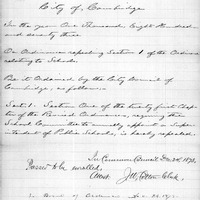 City of Cambridge
In the year One Thousand Eight Hundred
and seventy three.
An Ordinance repealing Section 1 of the Ordinance
relating to Schools.
Be it Ordained by the City Council of
Cambridge, as follows:
Sect. 1. Section One of the twenty first Chapter
of the Revised Ordinances, requiring the
School Committee to annually appoint a Superintendent
of Public Schools, is hereby repealed.
In Common Council Dec 1873.
Passed to be enrolled.
Attest. Clerk.